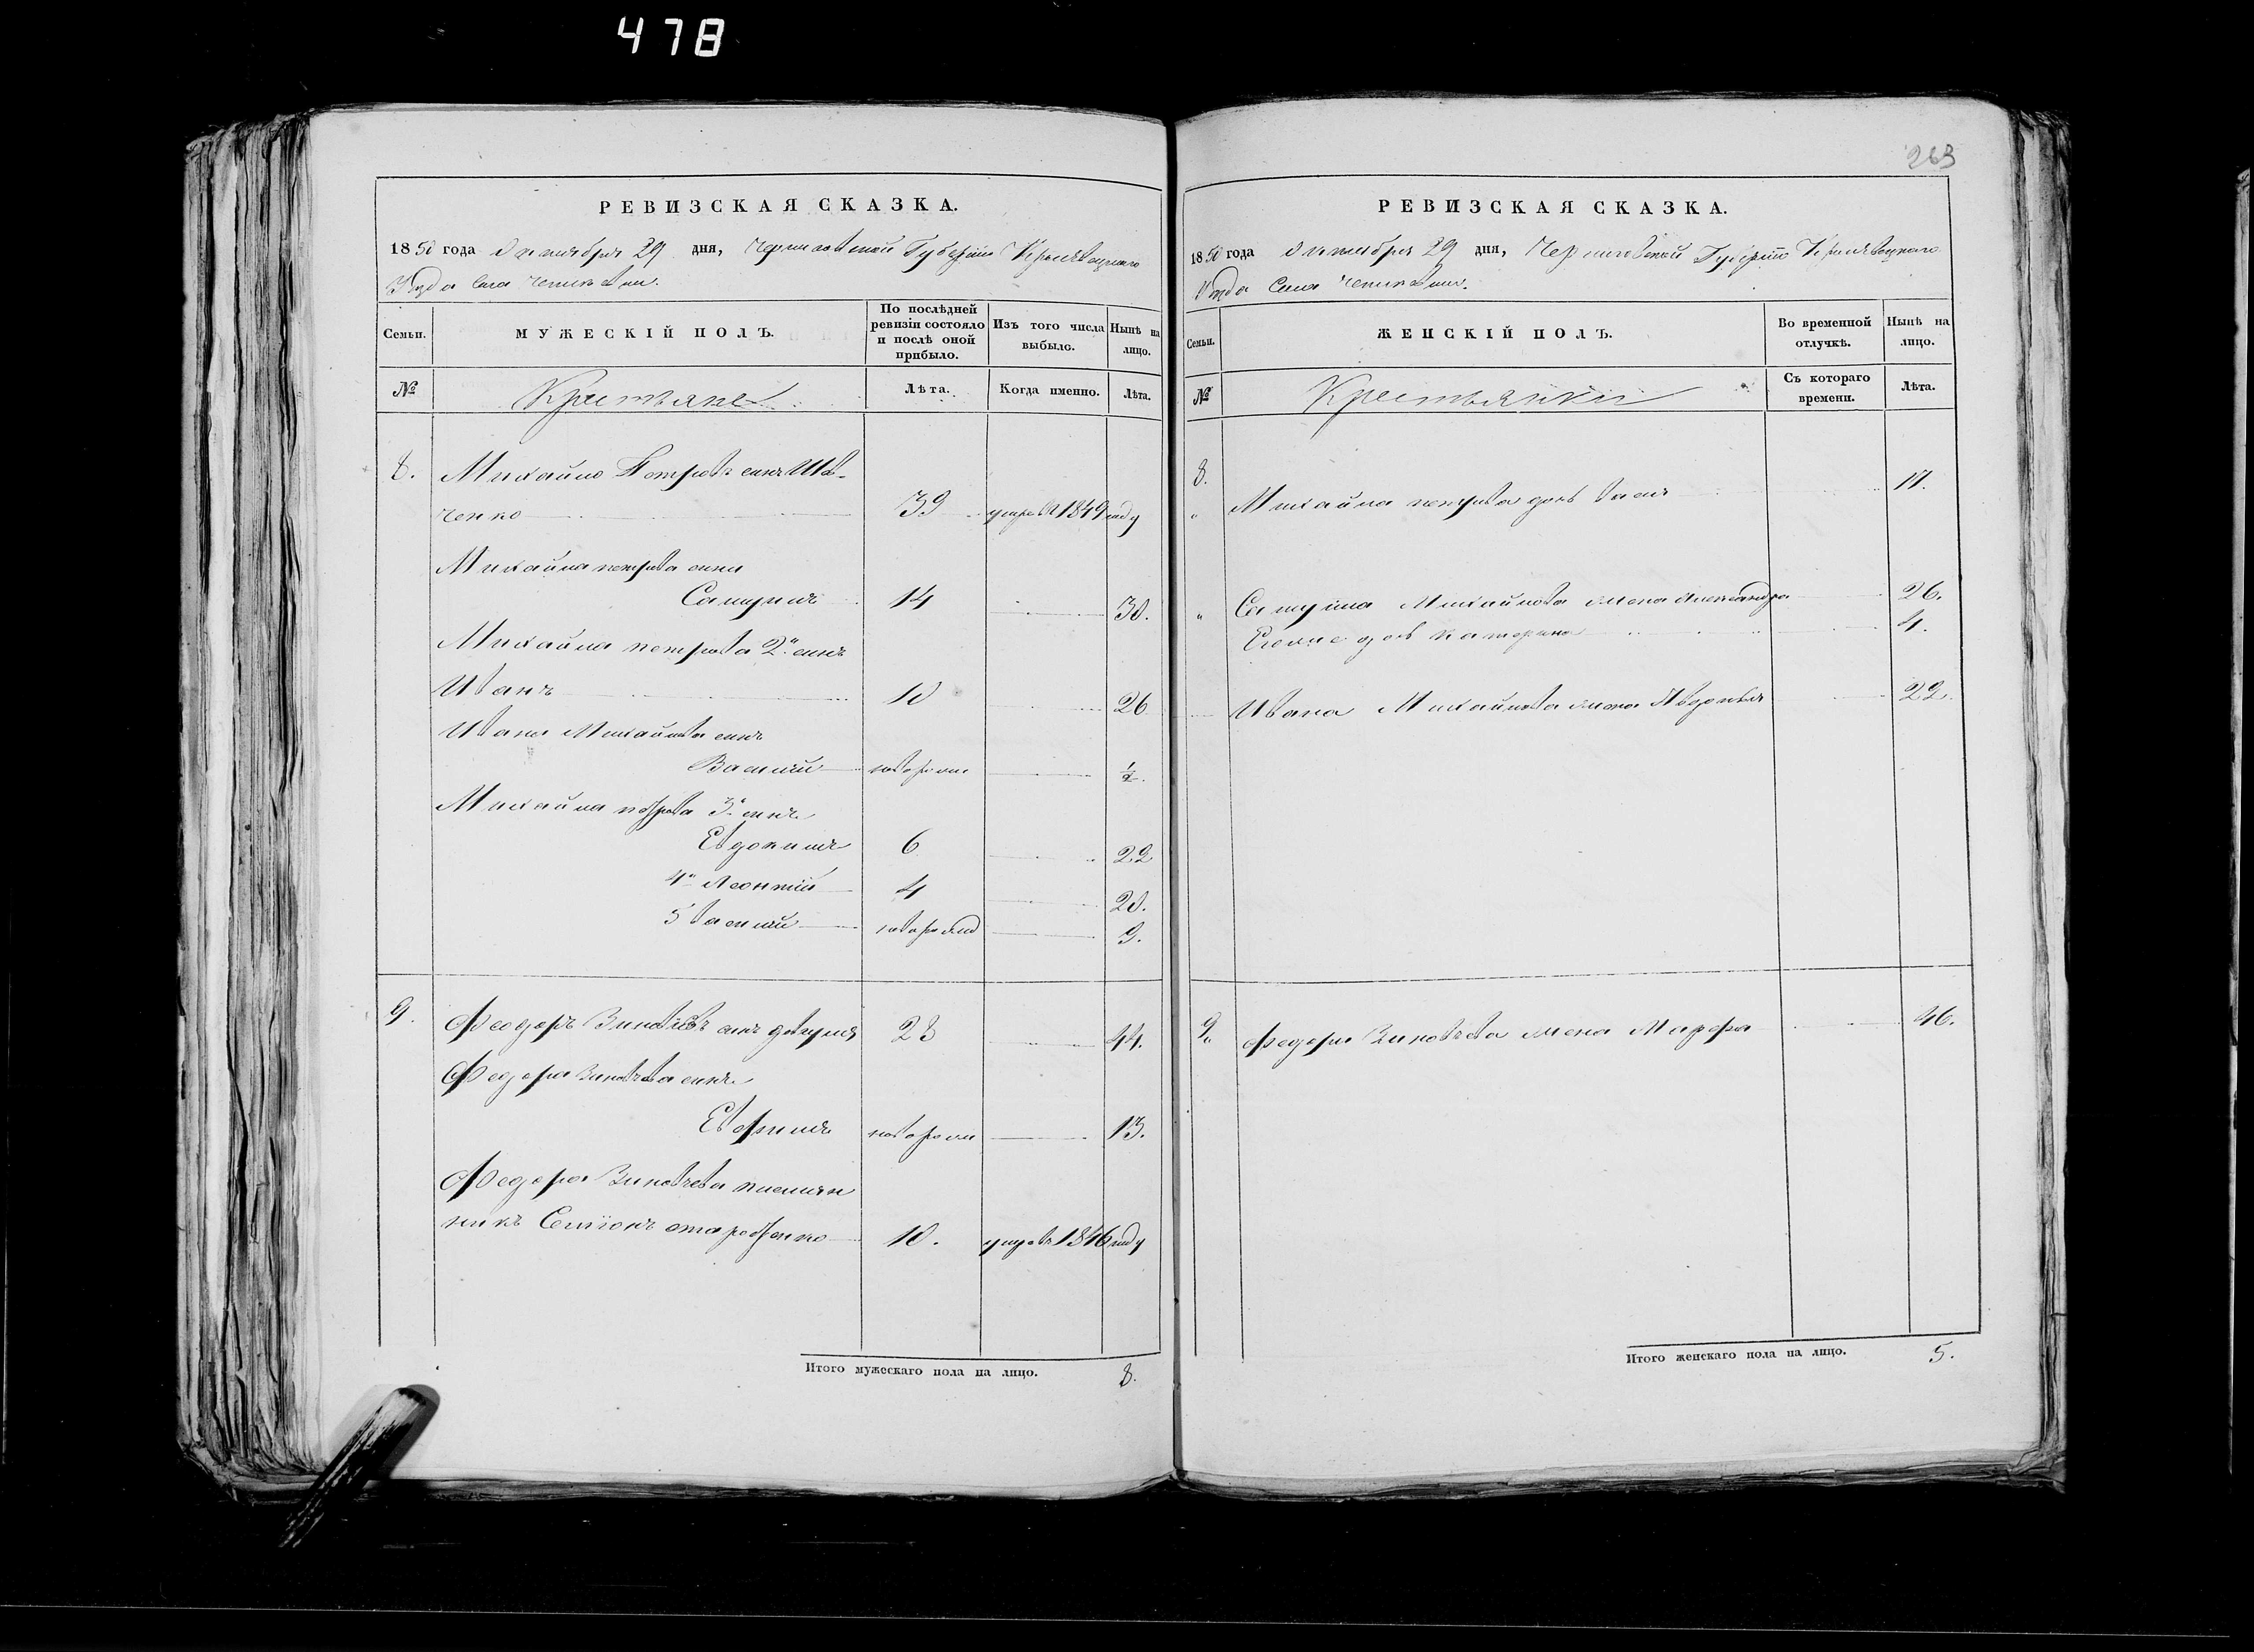 478
263
РЕВИЗСКАЯ СКАЗКА.
1850 года Октября 29 дня, Черниговской Губерніи Кролевецкаго
Уезда Села
Семьи.
МУЖЕСКІЙ ПОЛЪ.
По послѣдней ревизіи состояло и послѣ оной прибыло.
Изъ того числа выбыло.
Нынѣ на лицо.
№
Крестьяне
Лѣта.
Когда именно.
Лѣта.
8. Михайло Петровъ синъ Шев-
ченко 39 умре въ 1849 году
Михайла петрова синъ
Самуилъ 14 30.
Михайла петрова 2й синъ
Иванъ 10 26
Ивана Михайлова синъ
Василий новорож 1/2.
Михайла петрова 3й синъ
Евдокимъ 6 22
4й Леонтій 4 20.
5 василий новорожд 9.
9. Феодоръ синъ 28 44.
Федора синъ
Ефримъ новорож 13.
Федора племян
никъ Симіонъ 10. умре въ 1846 году
Итого мужескаго пола на лицо. 8.
РЕВИЗСКАЯ СКАЗКА.
1850 года Октября 29 дня, Черниговской Губерніи Кролевецкаго
Уезда Села
Семьи.
ЖЕНСКІЙ ПОЛЪ.
Во временной отлучкѣ.
Нынѣ на лицо.
№
Крестьянки
Съ котораго времени.
Лѣта.
8.
Михайла петрова дочь 17.
Самуила Михайлова жена Александра 26.
Егоже дочь катерина 4.
Ивана Михайлова жена 22.
9. Федора жена Марфа 46.
Итого женскаго пола на лицо. 5.